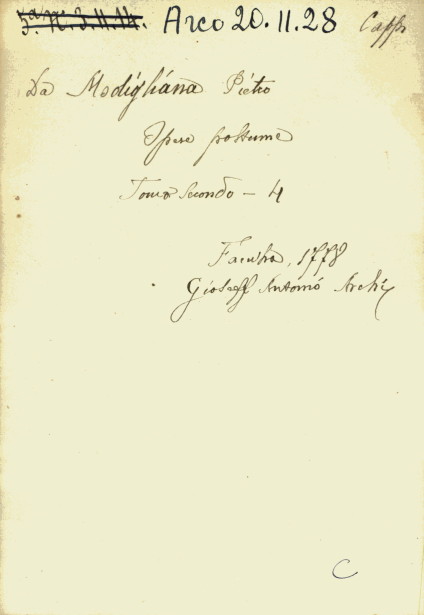 Arco 20.11.28 Capp.
Da Modigliana Pietro
Opere postume
Tomo Secondo - 4
Faenza, 1778
Gioseff Antonio Archi
C